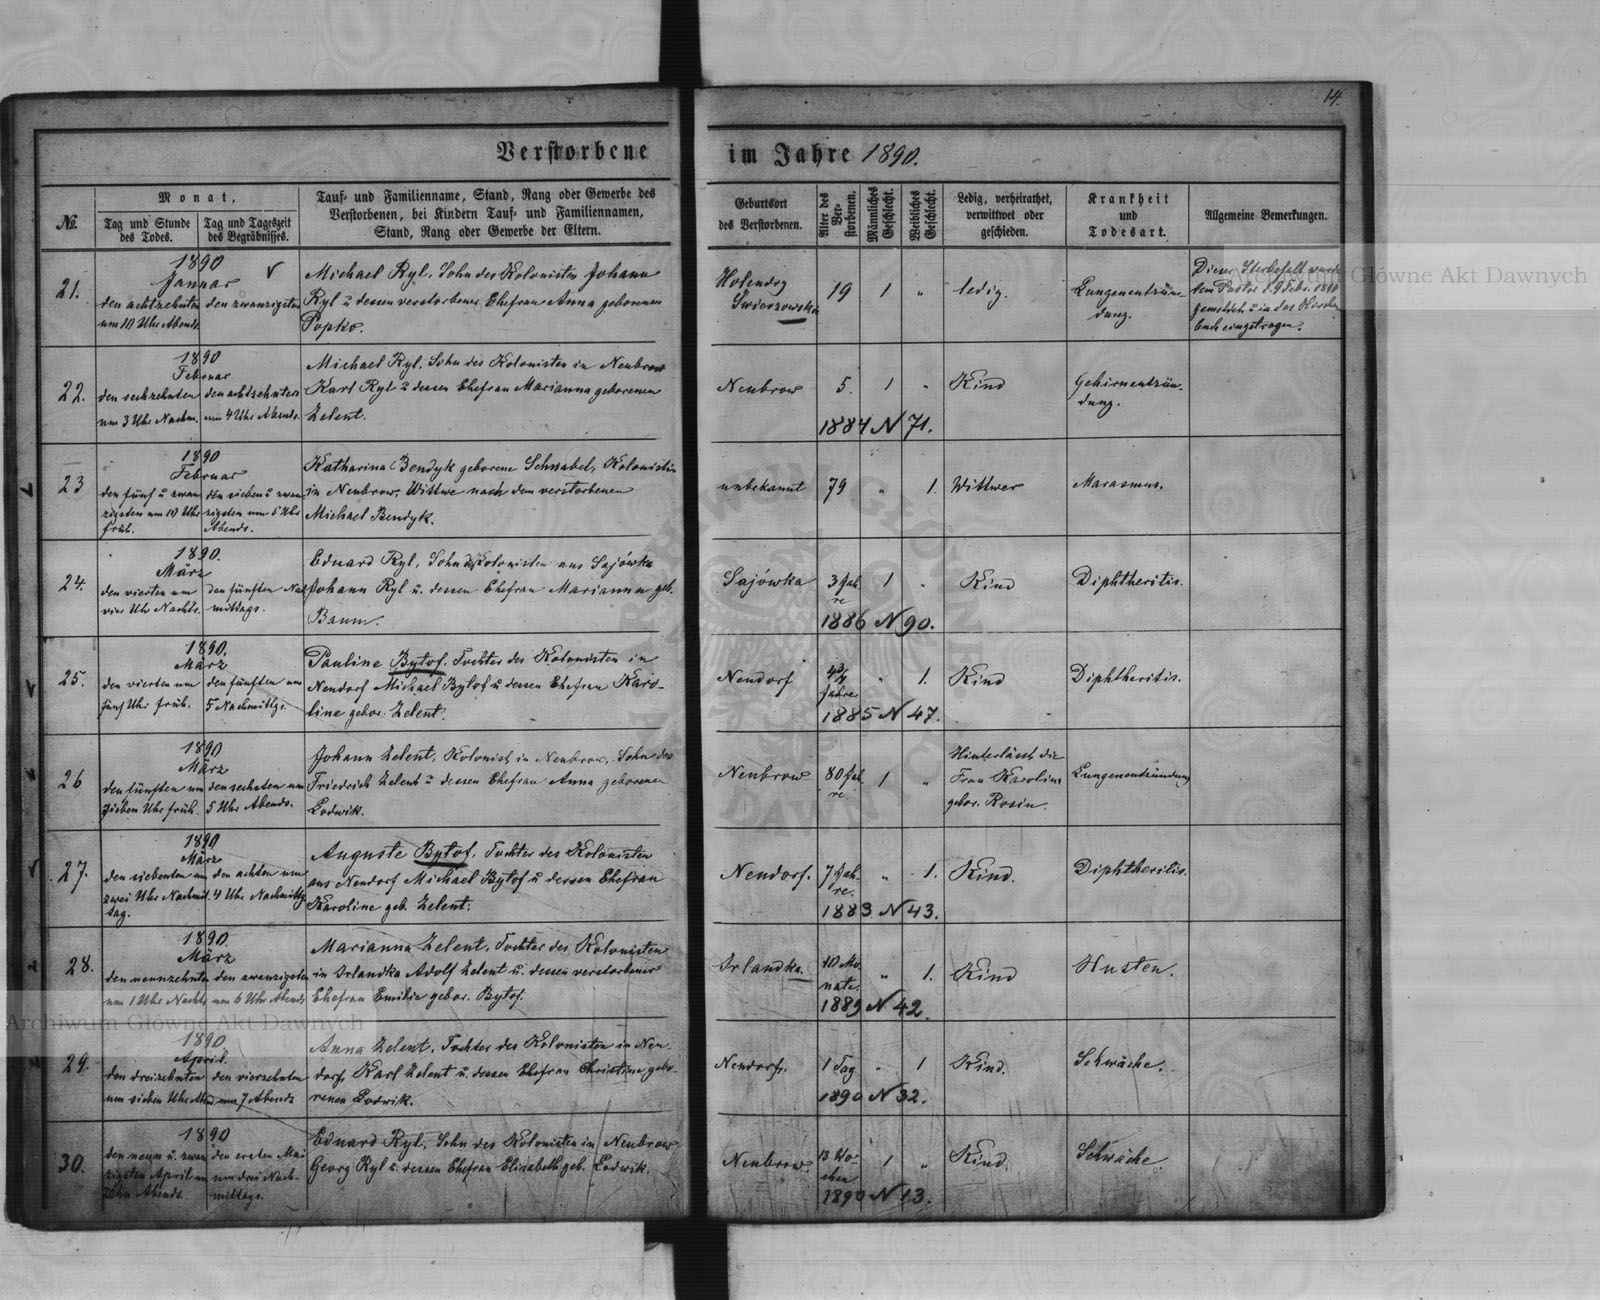 14.
Verstorbene im Jahre 1890.
№.
Monat,
Tag und Stunde des Todes.
Tag und Tageszeit des Begräbnisses.
Tauf- und Familienname, Stand, Rang oder Gewerbe des
Verstorbenen, bei Kindern Tauf- und Familiennamen,
Stand, Rang oder Gewerbe der Eltern.
Geburtsort
des Verstorbenen.
Alter des Verstorbenen.
Männliches Geschlecht.
Weibliches Geschlecht.
Ledig, verheirathet,
verwittwet oder
geschieden.
Krankheit
und
Todesart.
Allgemeine Bemerkungen.
21.
1890
Januar
den achtzehnten
um 10 Uhr Abends
den zwanzigsten
Michael Ryl, Sohn des Kolonisten Johann
Ryl u dessen verstorbener Ehefrau Anna geborenen
Popko.
Holendry
19
1
"
ledig.
Lungenentzün-
dung.
Dieser Sterbefall wurde
dem Pastor d. 9 Febr. 1890
gemeldet u in das Kirchen
buch eingetragen.
22.
1890
Februar
den sechzehnten
um 3 Uhr Nachm.
den achtzehnten
um 4 Uhr Abends.
Michael Ryl, Sohn des Kolonisten in Neubrow
Karl Ryl u dessen Ehefrau Marianna geborenen
Zelent.
Neubrow
5.
1
"
Kind
Gehirnentzün-
dung.
1884 N 71.
23
1890
Februar
den fünf u zwan
zigsten um 10 Uhr
früh.
den sieben u zwan
zigsten um 5 Uhr
Abends.
Katharina Bendyk geborene Schnabel, Kolonistin
in Neubrow, Wittwe nach dem verstorbenen
Michael Bendyk.
unbekannt
79
"
1.
Wittwer
Marasmus.
24.
1890.
März
den vierten um
vier Uhr Nachts.
den fünften Nach
mittags.
Eduard Ryl, Sohn des Kolonisten aus Sajówka
Johann Ryl u. dessen Ehefrau Marianna geb.
Baum.
Sajówka
3 Jah
re
1
"
Kind
Diphtheritis.
1886 N 90.
25.
1890.
März
den vierten um
fünf Uhr früh.
den fünften um
5 Nachmittgs.
Pauline Bytof, Tochter des Kolonisten in
Neudorf Michael Bytof u dessen Ehefrau Karo-
line gebor. Zelent.
Neudorf
4 3/4
Jahre
"
1.
Kind
Diphtheritis.
1885 N 47.
26
1890
März
den fünften um
sieben Uhr früh.
den sechsten um
5 Uhr Abends.
Johann Zelent, Kolonist in Neubrow, Sohn des
Friedrich Zelent u dessen Ehefrau Anna geborenen
Lodwik.
Neubrow
80 Jah
re
1
"
Hinterlässt die
Frau Karoline
gebor. Rosin.
Lungenentzündung
27.
1890
März
den siebenten um
zwei Uhr Nachmit.
tag.
den achten um
4 Uhr Nachmittg
Auguste Bytof, Tochter des Kolonisten
aus Neudorf Michael Bytof u dessen Ehefrau
Karoline geb. Zelent.
Neudorf.
7 Jah-
re.
"
1.
Kind.
Diphtheritis.
1883 N 43.
28.
1890.
März
den neunzehnten
um 1 Uhr Nachts
den zwanzigsten
um 6 Uhr Abends
Marianna Zelent, Tochter des Kolonisten
in Irlandka Adolf Zelent u. dessen verstorbener
Ehefrau Emilia gebor. Bytof.
Irlandka.
10 Mo.
nate.
"
1.
Kind
Husten.
1889 N 42
29.
1890
April
den dreizehnten
um sieben Uhr Abd
den vierzehnten
um 7 Abends
Anna Zelent, Tochter des Kolonisten in Neu
dorf, Karl Zelent u. dessen Ehefrau Christine gebo-
renen Lodwik.
Neudorf.
1 Tag
"
1
Kind.
Schwäche.
1890 N 32.
30.
1890
den neun u. zwan
zigsten April um
Zehn Abends.
den ersten Mai
um drei Nach-
mittags.
Eduard Ryl, Sohn des Kolonisten in Neubrow
Georg Ryl u. dessen Ehefrau Elisabeth geb. Lodwik.
Neubrow.
13 Wo-
chen
1
"
Kind.
Schwäche.
1890 N 13.
Archiwum Główne Akt Dawnych
Archiwum Główne Akt Dawnych